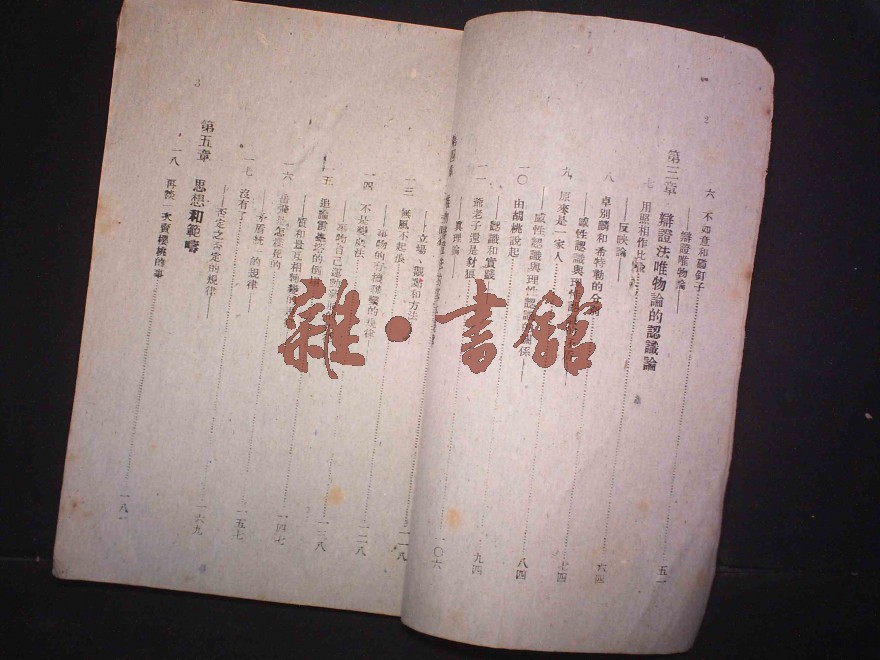 2
六 不如意和碰釘子
——辯證唯物論——
第三章 辯證法唯物論的認識論 五一
七 用照相作比喻
——反映論—— 六四
八 卓別麟和希特勒的分別
——感性認識與理性 七四
九 原來是一家人
——感性認識與理性認識 關係—— 八四
一〇 由胡桃說起
——認識和實踐—— 九四
一一 爺老子還是豺狼
——真理論—— 一〇六
3
——立場、觀點和方法 一一八
一三 無風不起浪
——事物的 規律 一二八
一四 不是變戲法
——事物自己運動 一三八
一五 追論雷峯塔的倒塌
——質和量互相 一四七
一六 是怎樣死的
——矛盾統一的規律—— 一五七
一七 沒有了
——否定之否定的規律—— 一六九
第五章 思想和範疇
一八 再談一次賣櫻桃的事 一八一
雜·書館